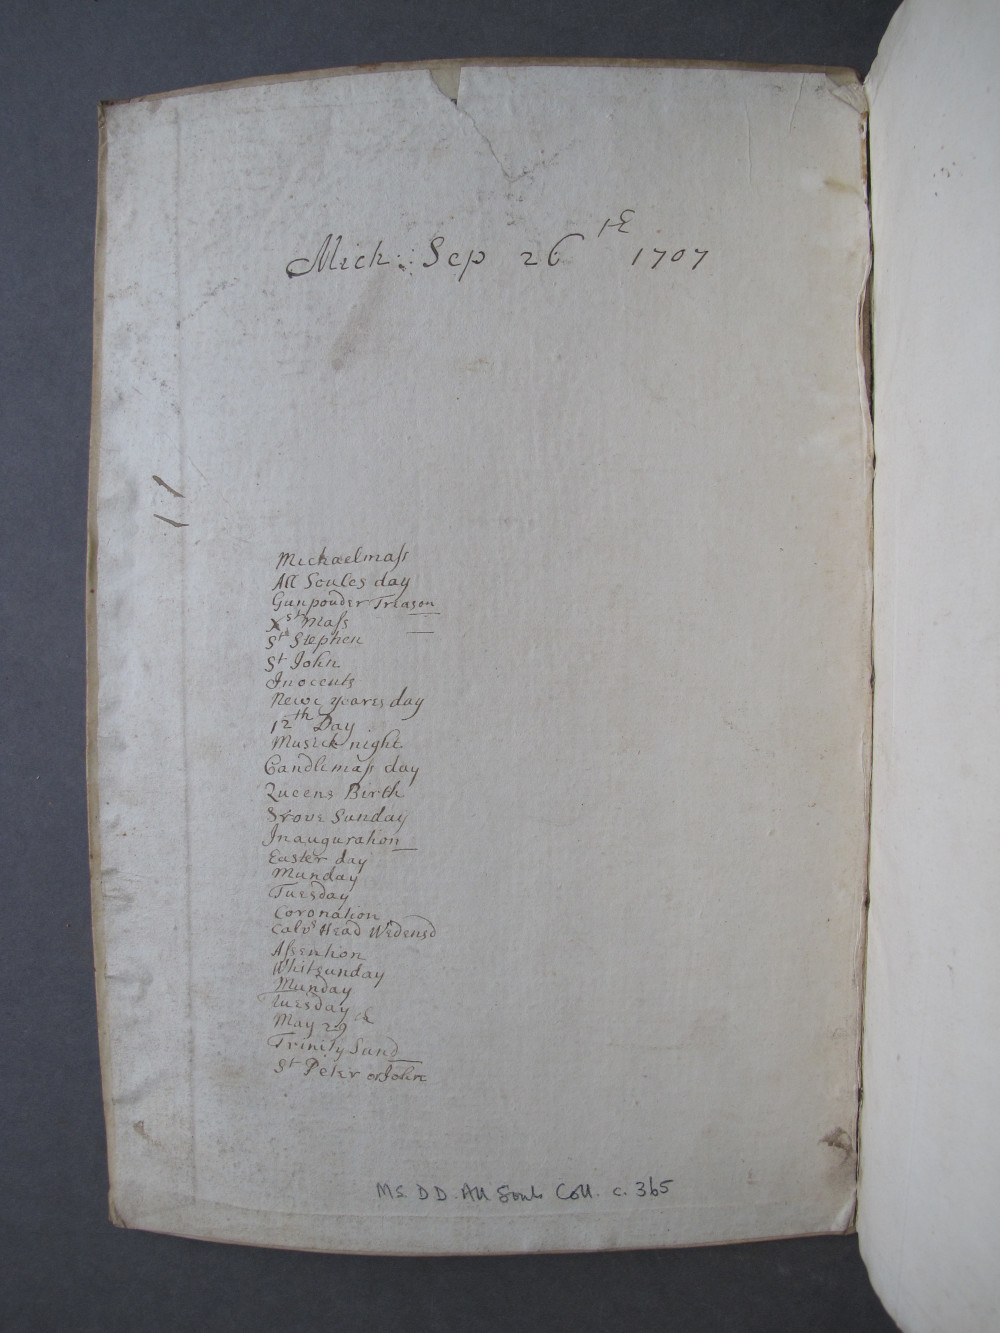 Mich: Sep 26th 1707
Michaelmass
All Soules day
Gunpouder Treason
Xst Mass
St Stephen
St John
Inocents
Newe yeares day
12th Day
Musick night
Candlemass day
Queens Birth
Srove Sunday
Inauguration
Easter day
Munday
Tuesday
Coronation
Calvs Head Wedensd
Assention
Whitsunday
Munday
Tuesday
May 29th
Trinity Sund
St Peter or John
MS. D D. All Souls Coll. c. 365